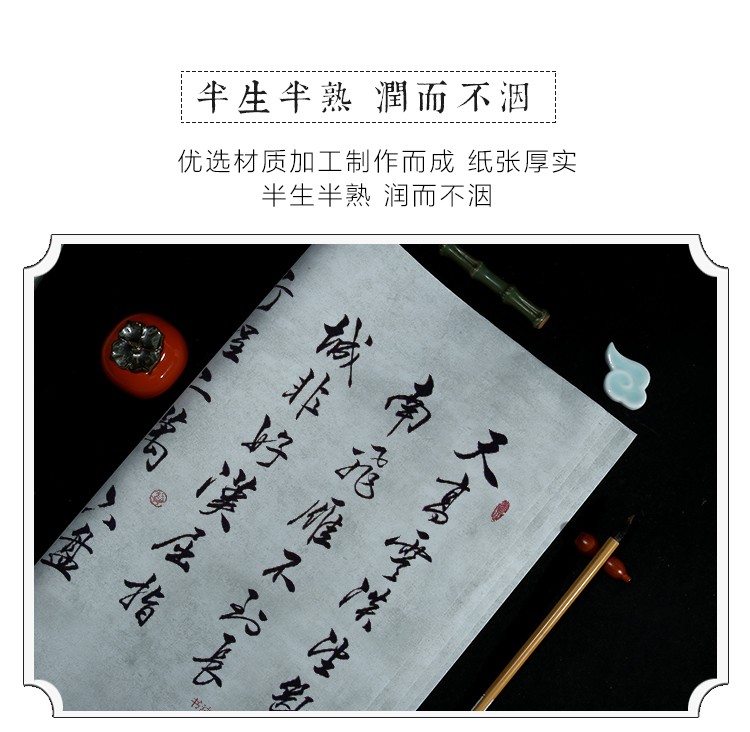 半生半熟 潤而不洇
优选材质加工制作而成 纸张厚实
半生半熟 润而不洇
天高雲淡望斷
南飛雁不到長
城非好漢屈指
二萬
六盤